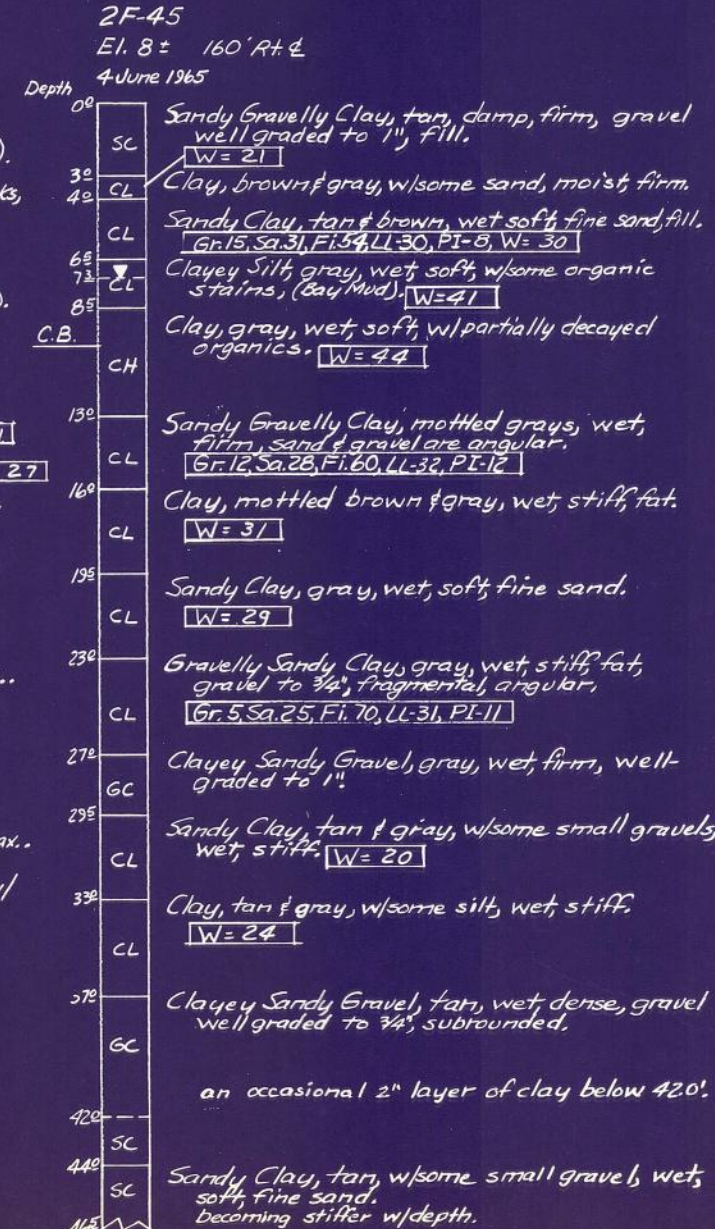 2F-45
El. 8± 160' Rt. ℄
4 June 1965
Depth
0⁰
SC
Sandy Gravelly Clay, tan, damp, firm, gravel
well graded to 1", fill.
W = 21
3⁰
CL
4⁰
Clay, brown & gray, w/some sand, moist, firm.
CL
Sandy Clay, tan & brown, wet soft, fine sand, fill.
Gr. 15, Sa. 31, Fi. 54, LL-30, PI-8, W= 30
6⁵
7³
CL
8⁵
Clayey Silt, gray, wet, soft, w/some organic
stains, (Bay Mud). W=41
C.B.
CH
Clay, gray, wet, soft, w/partially decayed
organics. W= 44
13⁰
CL
Sandy Gravelly Clay, mottled grays, wet,
firm, sand & gravel are angular.
Gr. 12, Sa. 28, Fi. 60, LL-32, PI-12
16⁰
CL
Clay, mottled brown & gray, wet, stiff, fat.
W = 31
19⁵
CL
Sandy Clay, gray, wet, soft, fine sand.
W = 29
23⁰
CL
Gravelly Sandy Clay, gray, wet, stiff, fat,
gravel to 3/4", fragmental, angular,
Gr. 5, Sa. 25, Fi. 70, LL-31, PI-11
27⁰
GC
Clayey Sandy Gravel, gray, wet, firm, well-
graded to 1".
29⁵
CL
Sandy Clay, tan & gray, w/some small gravels,
wet, stiff. W= 20
33⁰
CL
Clay, tan & gray, w/some silt, wet, stiff.
W= 24
37⁰
GC
Clayey Sandy Gravel, tan, wet, dense, gravel
well graded to 3/4", subrounded.
an occasional 2" layer of clay below 42.0'.
42⁰
SC
44⁰
SC
Sandy Clay, tan, w/some small gravel, wet,
soft, fine sand.
becoming stiffer w/depth.
46⁵
).
ks,
).
27
ax..